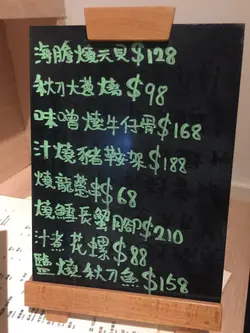 海膽燒元貝$128
秋刀大葱燒$98
味噌燒牛仔骨$168
汁燒豬鞍架$188
燒龍躉$68
燒鱈長蟹腳$210
汁煮花螺$88
鹽燒秋刀魚$158